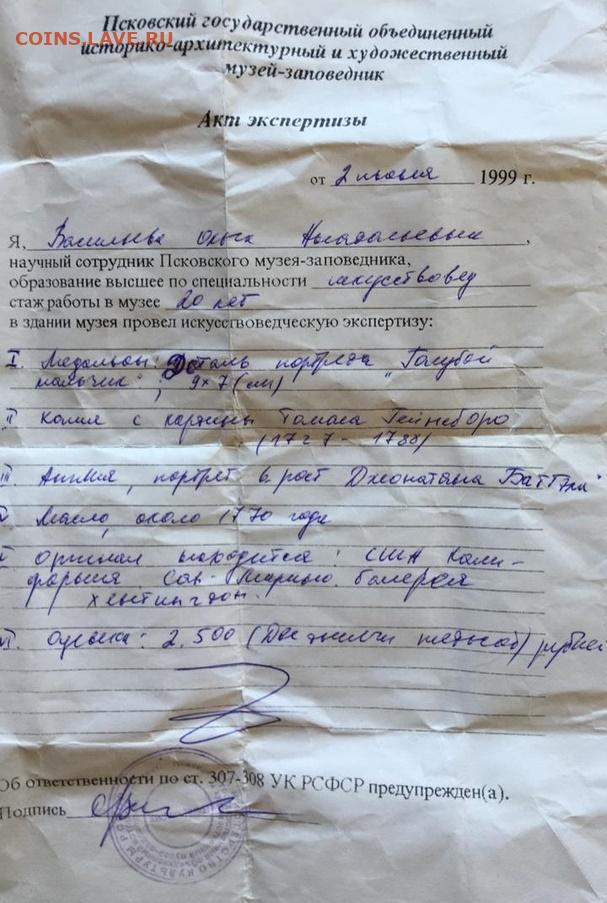 Псковский государственный объединенный
COINS.LAVE.RU
историко-архитектурный и художественный
музей-заповедник
Акт экспертизы
от 2 июня 1999 г.
Я, Васильева Ольга
научный сотрудник Псковского музея-заповедника,
образование высшее по специальности искусствовед
стаж работы в музее 20 лет
в здании музея провел искусствоведческую экспертизу:
I. Медальон: Деталь портрета "Голубой
мальчик"; 9х7 (см)
II Копия с картины Томаса Гейнсборо
(1727 - 1788)
III. Англия, портрет в рост Джонатана Баттла
Масло, около 1770 года
Оригинал находится: США Кали-
форния Сан-Марино. Галерея
Хентингтон.
VI. Оценка: 2.500 (Две тысячи пятьсот) рублей
Об ответственности по ст. 307-308 УК РСФСР предупрежден(а).
Подпись